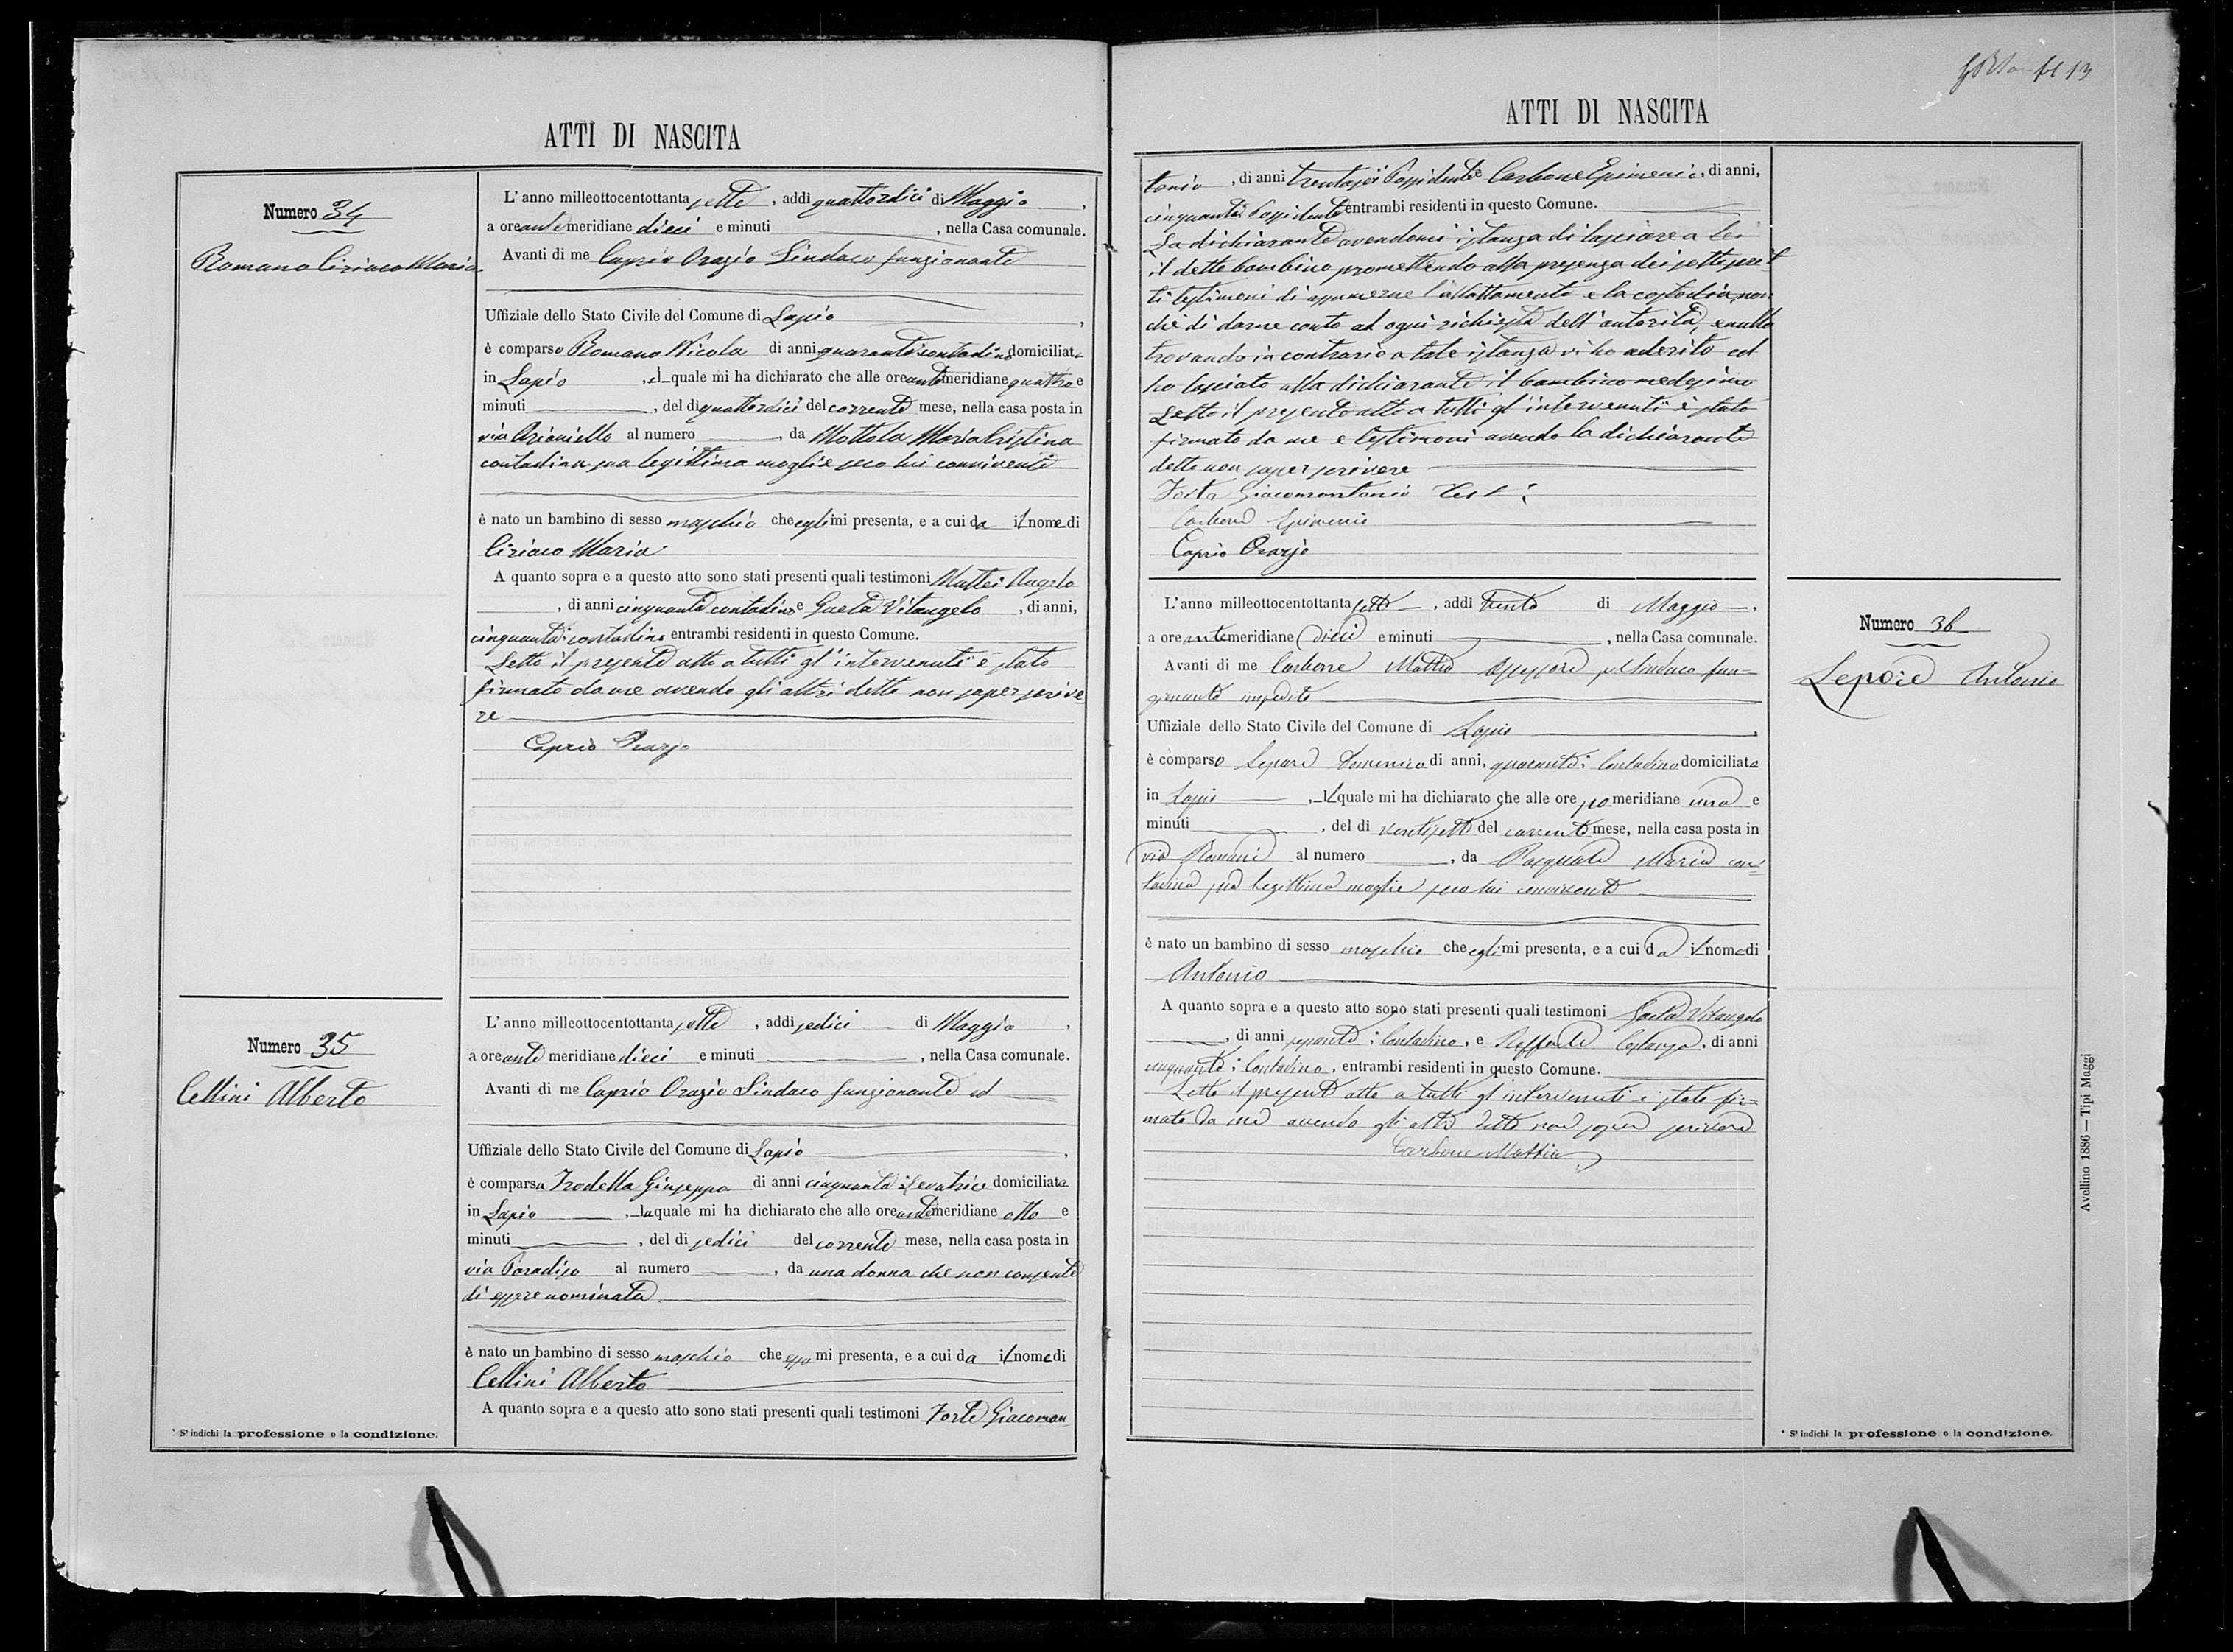 ATTI DI NASCITA
Numero 34
Romano Ciriaco Maria
L'anno milleottocentottanta sette, addì quattordici di Maggio,
a ore ante meridiane dieci e minuti , nella Casa comunale.
Avanti di me Caprio Orazio Sindaco funzionante
Uffiziale dello Stato Civile del Comune di Lapio,
è comparso Romano Nicola di anni quaranta contadino domiciliato
in Lapio, il quale mi ha dichiarato che alle ore ante meridiane quattro e
minuti , del dì quattordici del corrente mese, nella casa posta in
via Arianiello al numero , da Mottola Maria Cristina
contadina sua legittima moglie seco lui convivente
è nato un bambino di sesso maschio che egli mi presenta, e a cui da il nome di
Ciriaco Maria
A quanto sopra e a questo atto sono stati presenti quali testimoni Mattei Angelo
, di anni cinquanta contadino e Gaeta Vitangelo, di anni,
cinquanta contadino entrambi residenti in questo Comune.
Letto il presente atto a tutti gl'intervenuti è stato
firmato da me avendo gli altri detto non saper scrive
re
Caprio Orazio
Numero 35
Cellini Alberto
L'anno milleottocentottanta sette, addì sedici di Maggio,
a ore ante meridiane dieci e minuti , nella Casa comunale.
Avanti di me Caprio Orazio Sindaco funzionante ed
Uffiziale dello Stato Civile del Comune di Lapio,
è comparsa Trodella Giuseppa di anni cinquanta levatrice domiciliata
in Lapio, la quale mi ha dichiarato che alle ore ante meridiane otto e
minuti , del dì sedici del corrente mese, nella casa posta in
via Paradiso al numero , da una donna che non consente
di essere nominata
è nato un bambino di sesso maschio che essa mi presenta, e a cui da il nome di
Cellini Alberto
A quanto sopra e a questo atto sono stati presenti quali testimoni Forte Giacoman
* S'indichi la professione o la condizione.
13
ATTI DI NASCITA
tonio, di anni trentasei Possidente e Carbone Epimenio, di anni,
cinquanta Possidente entrambi residenti in questo Comune.
La dichiarante avendomi istanza di lasciare a lei
il detto bambino promettendo alla presenza dei sottoscrit
ti testimoni di assumerne l'allattamento e la custodia, non
chè di darne conto ad ogni richiesta dell'autorità, e nulla
trovando in contrario a tale istanza vi ho aderito ed
ho lasciato alla dichiarante il bambino medesimo
Letto il presente atto a tutti gl'intervenuti è stato
firmato da me e testimoni avendo la dichiarante
detto non saper scrivere
Forte Giacomantonio
Carbone Epimenio
Caprio Orazio
Numero 36
Lepore Antonio
L'anno milleottocentottanta sette, addì trenta di Maggio,
a ore ante meridiane dieci e minuti , nella Casa comunale.
Avanti di me Carbone Mattia Assessore pel Sindaco fun
zionante impedito
Uffiziale dello Stato Civile del Comune di Lapio,
è comparso Lepore Domenico di anni, quaranta contadino domiciliato
in Lapio, il quale mi ha dichiarato che alle ore po meridiane una e
minuti , del dì ventisette del corrente mese, nella casa posta in
via Romani al numero , da Pasquale Maria con
tadina sua legittima moglie seco lui convivente
è nato un bambino di sesso maschio che egli mi presenta, e a cui da il nome di
Antonio
A quanto sopra e a questo atto sono stati presenti quali testimoni Gaeta Vitangelo
, di anni contadino, e Costanzo, di anni
cinquanta contadino, entrambi residenti in questo Comune.
Letto il presente atto a tutti gl'intervenuti è stato fir
mato da me avendo gli altri detto non saper scrivere
Carbone Mattia
Avellino 1886 — Tipi Maggi
* S'indichi la professione o la condizione.